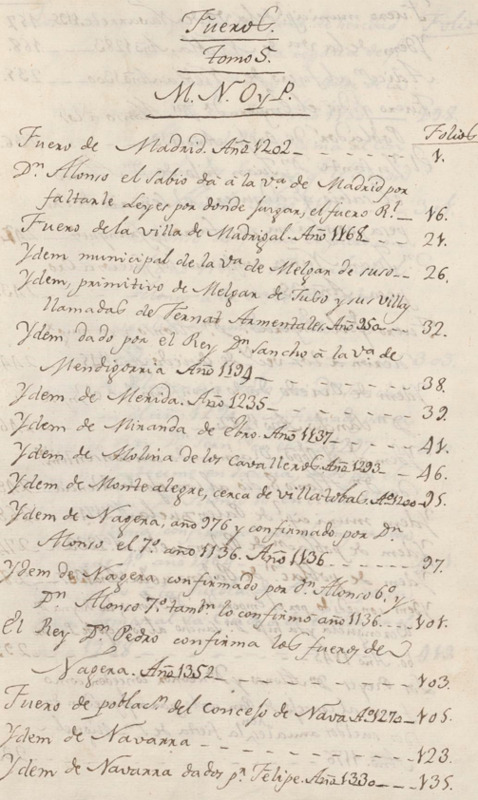 Fueros.
Tomo 5.
M. N. O y P.
Folios
Fuero de Madrid. Año 1202 - - - - - - 1.
Dn. Alonso el Sabio dá á la va. de Madrid por
faltarle Leyes por donde juzgar, el fuero Rl. - 16.
Fuero de la villa de Madrigal. Año 1168 - - - 21.
Ydem municipal de la va. de Melgar de suso - - 26.
Ydem, primitivo de Melgar de Suso y sus villas
llamadas de Fernat Armentales. Año 950 - - - 32.
Ydem dado por el Rey Dn. Sancho á la va. de
Mendigorria Año 1194 - - - - - - 38.
Ydem de Merida. Año 1235 - - - - - - 39.
Ydem de Miranda de Ebro. Año 1137 - - - - 41.
Ydem de Molina de los Cavalleros. Año 1293 - - 46.
Ydem de Montealegre, cerca de villalobos. Ao. 1200 - 95.
Ydem de Nagera, año 976 y confirmado por Dn.
Alonso el 7o. año 1136. Año 1136 - - - - 97.
Ydem de Nagera confirmado por Dn. Alonso 6o. y
Dn. Alonso 7o. tambn. lo confirmo año 1136 - - - 101.
El Rey Dn. Pedro confirma los fueros de
Nagera. Año 1352 - - - - - - 103.
Fuero de poblacn. del concejo de Nava Ao. 1270 - 105.
Ydem de Navarra - - - - - - - 123.
Ydem de Navarra dados pr. Felipe. Año 1330 - - 135.